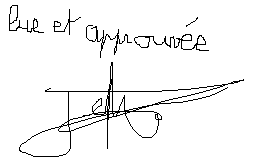 Lue et approuvée